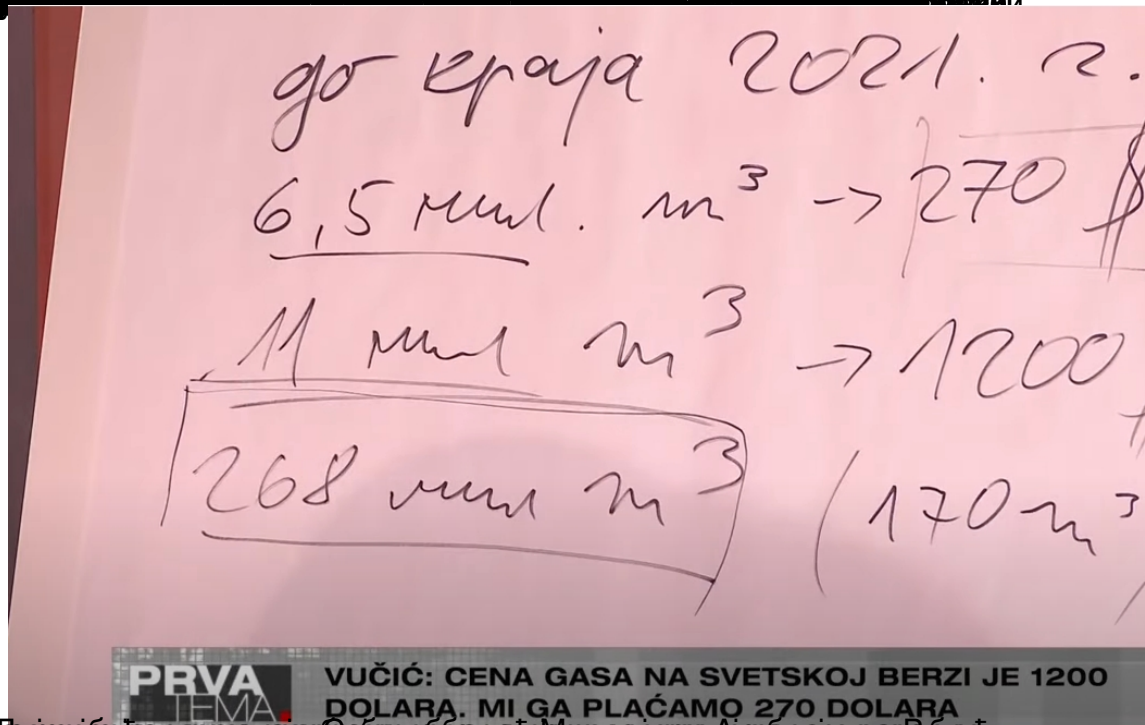 до краја 2021. г.
6,5 мил. m³ → 270 $
11 мил m³ → 1200
268 мил m³ (170 m³
PRVA
TEMA.
VUČIĆ: CENA GASA NA SVETSKOJ BERZI JE 1200
DOLARA, MI GA PLAĆAMO 270 DOLARA